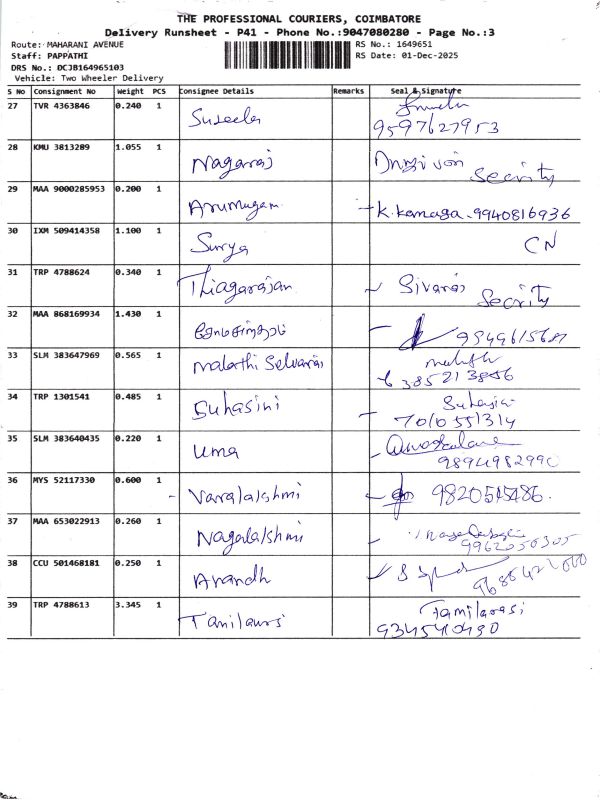 THE PROFESSIONAL COURIERS, COIMBATORE
Delivery Runsheet - P41 - Phone No.:9047080280 - Page No.:3
Route: MAHARANI AVENUE RS No.: 1649651
Staff: PAPPATHI RS Date: 01-Dec-2025
DRS No.: DCJB164965103
Vehicle: Two Wheeler Delivery
S No Consignment No Weight PCS Consignee Details Remarks Seal & Signature
27 TVR 4363846 0.240 1 Suseela
9597627953
28 KMU 3813289 1.055 1 Nagaraj
Secrity
29 MAA 9000285953 0.200 1 Arumugam K. Kamaga. 9940816936
30 IXM 509414358 1.100 1 Surya CN
31 TRP 4788624 0.340 1 Thiagarajan Sivaraj
Secrity
32 MAA 868169934 1.430 1
33 SLM 383647969 0.565 1 Malathi Selvaraj
6385213856
34 TRP 1301541 0.485 1 Suhasini
7010551314
35 SLM 383640435 0.220 1 Uma
9894982990
36 MYS 52117330 0.600 1 Varalakshmi
37 MAA 653022913 0.260 1 Nagalakshmi
9962050305
38 CCU 501468181 0.250 1 Anandh
39 TRP 4788613 3.345 1 Tamilarasi